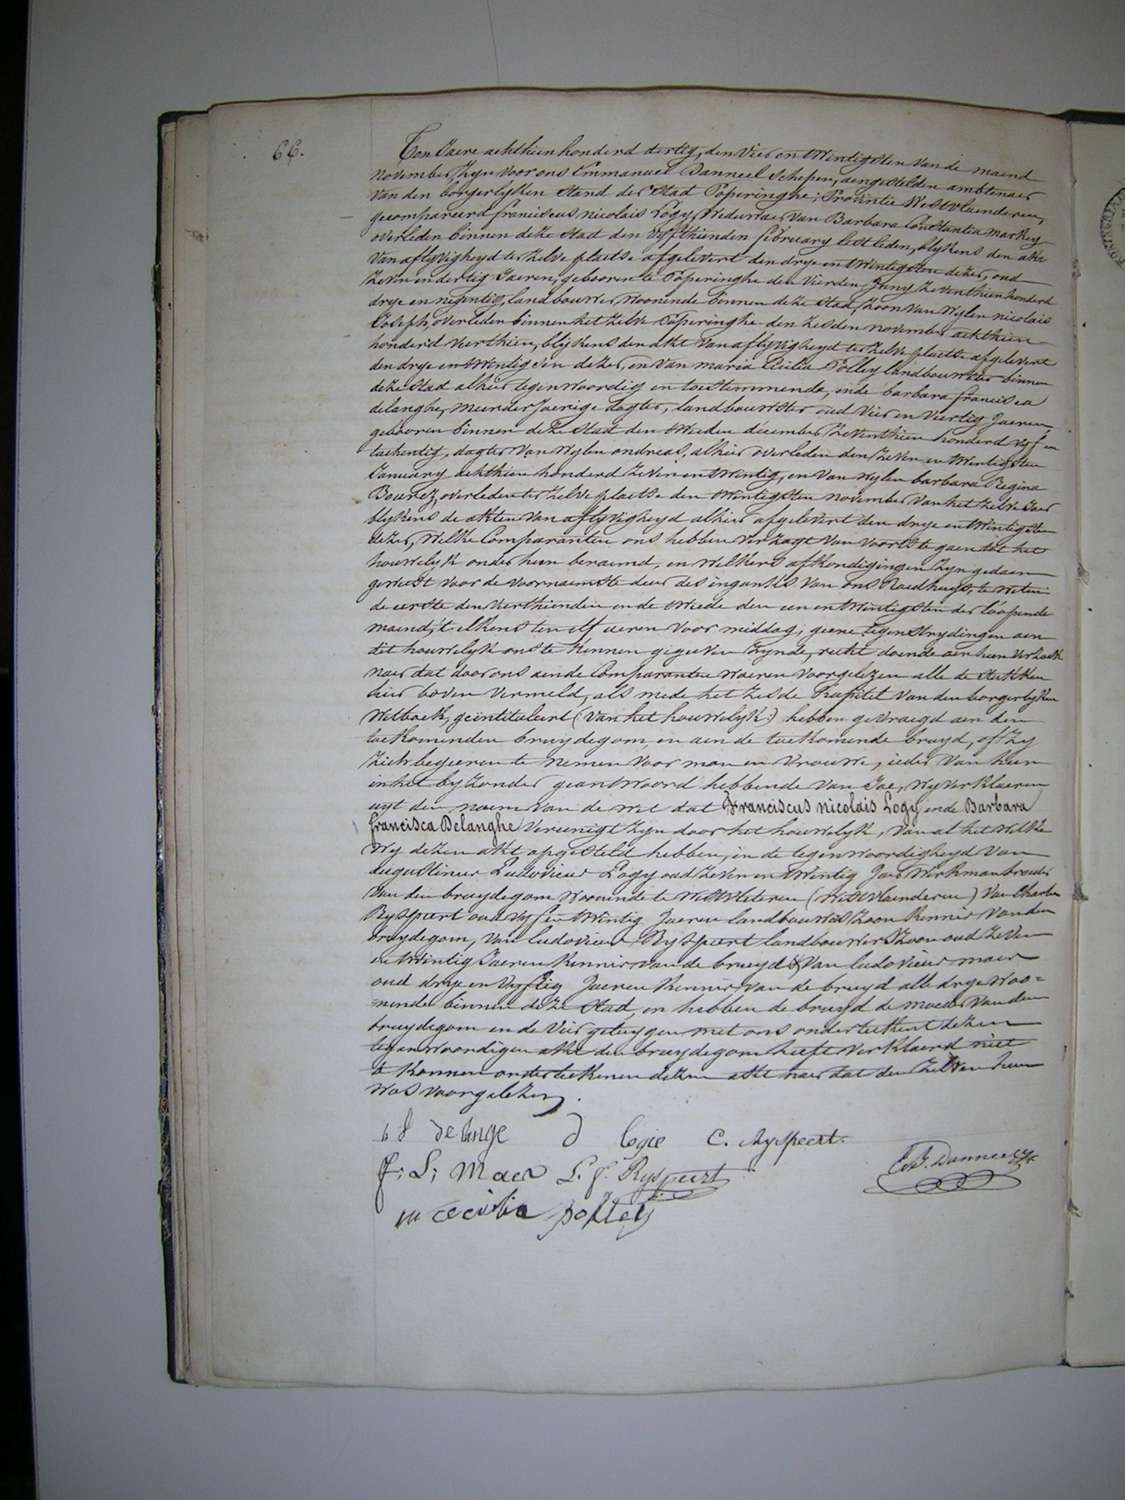 66.
Ten Jaere achthien honderd dertig, den Vier en twintigsten van de maend
november, zyn voor ons Emmanuel Danneel Schepen, aengestelden ambtenaer
van den borgerlyken Stand der Stad Poperinghe, Provintie Westvlaenderen,
gecompareerd franciscus nicolais Logy, Weduwaer van Barbara Constantia markey
overleden binnen deze Stad den vyfthienden february lestleden, blykens den akt
van aflyvigheyd ter zelve plaetse afgelevert den drye en twintigsten dezer, oud
zeven en dertig Jaeren, gebooren te Poperinghe den Vierden Juny zeventhien honderd
drye en negentig, landbouwer, woonende binnen deze Stad, zoon van Wylen nicolais
Joseph, overleden binnen het zelve Poperinghe den zesden november achthien
honderd Veerthien, blykens den akt van aflyvigheyd ter zelve plaetse afgelevert
den drye en twintigsten dezer, en van maria Cicilia Polley landbouwster binnen
deze Sted alhier tegenwoordig en toestemmende, ende barbara francisca
delanghe, meerderjaerige dogter, landbouwster oud Vier en Veertig Jaeren,
gebooren binnen deze Stad den tweeden december zeventhien honderd vyf en
tachentig, dogter van Wylen andreas, alhier overleden den zeven en twintigsten
January achthien honderd zeven en twintig, en van Wylen barbara Regina
overleden ter zelve plaetse den twintigsten november van het zelve Jaer
blykens de akten van aflyvigheyd alhier afgelevert den drye en twintigsten
dezer, welke Comparanten ons hebben verzogt van voorts te gaen tot het
houwelyk onder hun beraemd, en welkers afkondigingen zyn gedaen
geweest voor de voornaemste deur des ingangs van ons Raedhuys, te weten:
de eerste den Veerthienden en de tweede den een en twintigsten der loopende
maend, t'elkens ten elf ueren voor middag; geene tegenstrydingen aen
dit houwelyk ons te kennen gegeven zynde, recht doende aen hun verzoek
naer dat door ons aen de Comparanten waeren voorgelezen alle de Stukken
hier boven vermeld, als mede het zesde Kapittel van den borgerlyken
Wetboek, geintituleert (van het houwelyk) hebben gevraegd aen den
toekomenden bruydegom, en aen de toekomende bruyd, of zy
zich begeeren te nemen voor man en vrouwe, ieder van hun
in het byzonder geantwoord hebbende van Jae, wy verklaeren
uyt den naem van de wet dat Franciscus nicolais Logy, ende Barbara
francisca Delanghe vereenigt zyn door het houwelyk, van al het welke
wy dezen akt opgesteld hebben, in de tegenwoordigheyd van
augustinus Ludovicus Logy oud zeven en twintig Jaer Werkman broeder
van den bruydegom woonende te Westvleteren (Westvlaenderen) Van Charles
Ryspeert oud vyf en twintig Jaeren landbouwers zoon kennis van den
bruydegom, van ludovicus Ryspeert landbouwers zoon oud zeven
en twintig Jaeren kennis van de bruyd & van ludovicus maer
oud drye en vyftig Jaeren kennis van de bruyd alle drye woo=
=nende binnen deze Stad, en hebben de bruyd de moeder van den
bruydegom en de vier getuygen met ons onderteekent dezen
tegenwoordigen akt den bruydegom heeft verklaerd niet
te konnen onderteekenen dezen akt naer dat den zelven hun
was voorgelezen.
b f delange d logie C. Ryspeert.
f: L; Maer L. f. Ryspeert E. Danneel
m cecilia polley